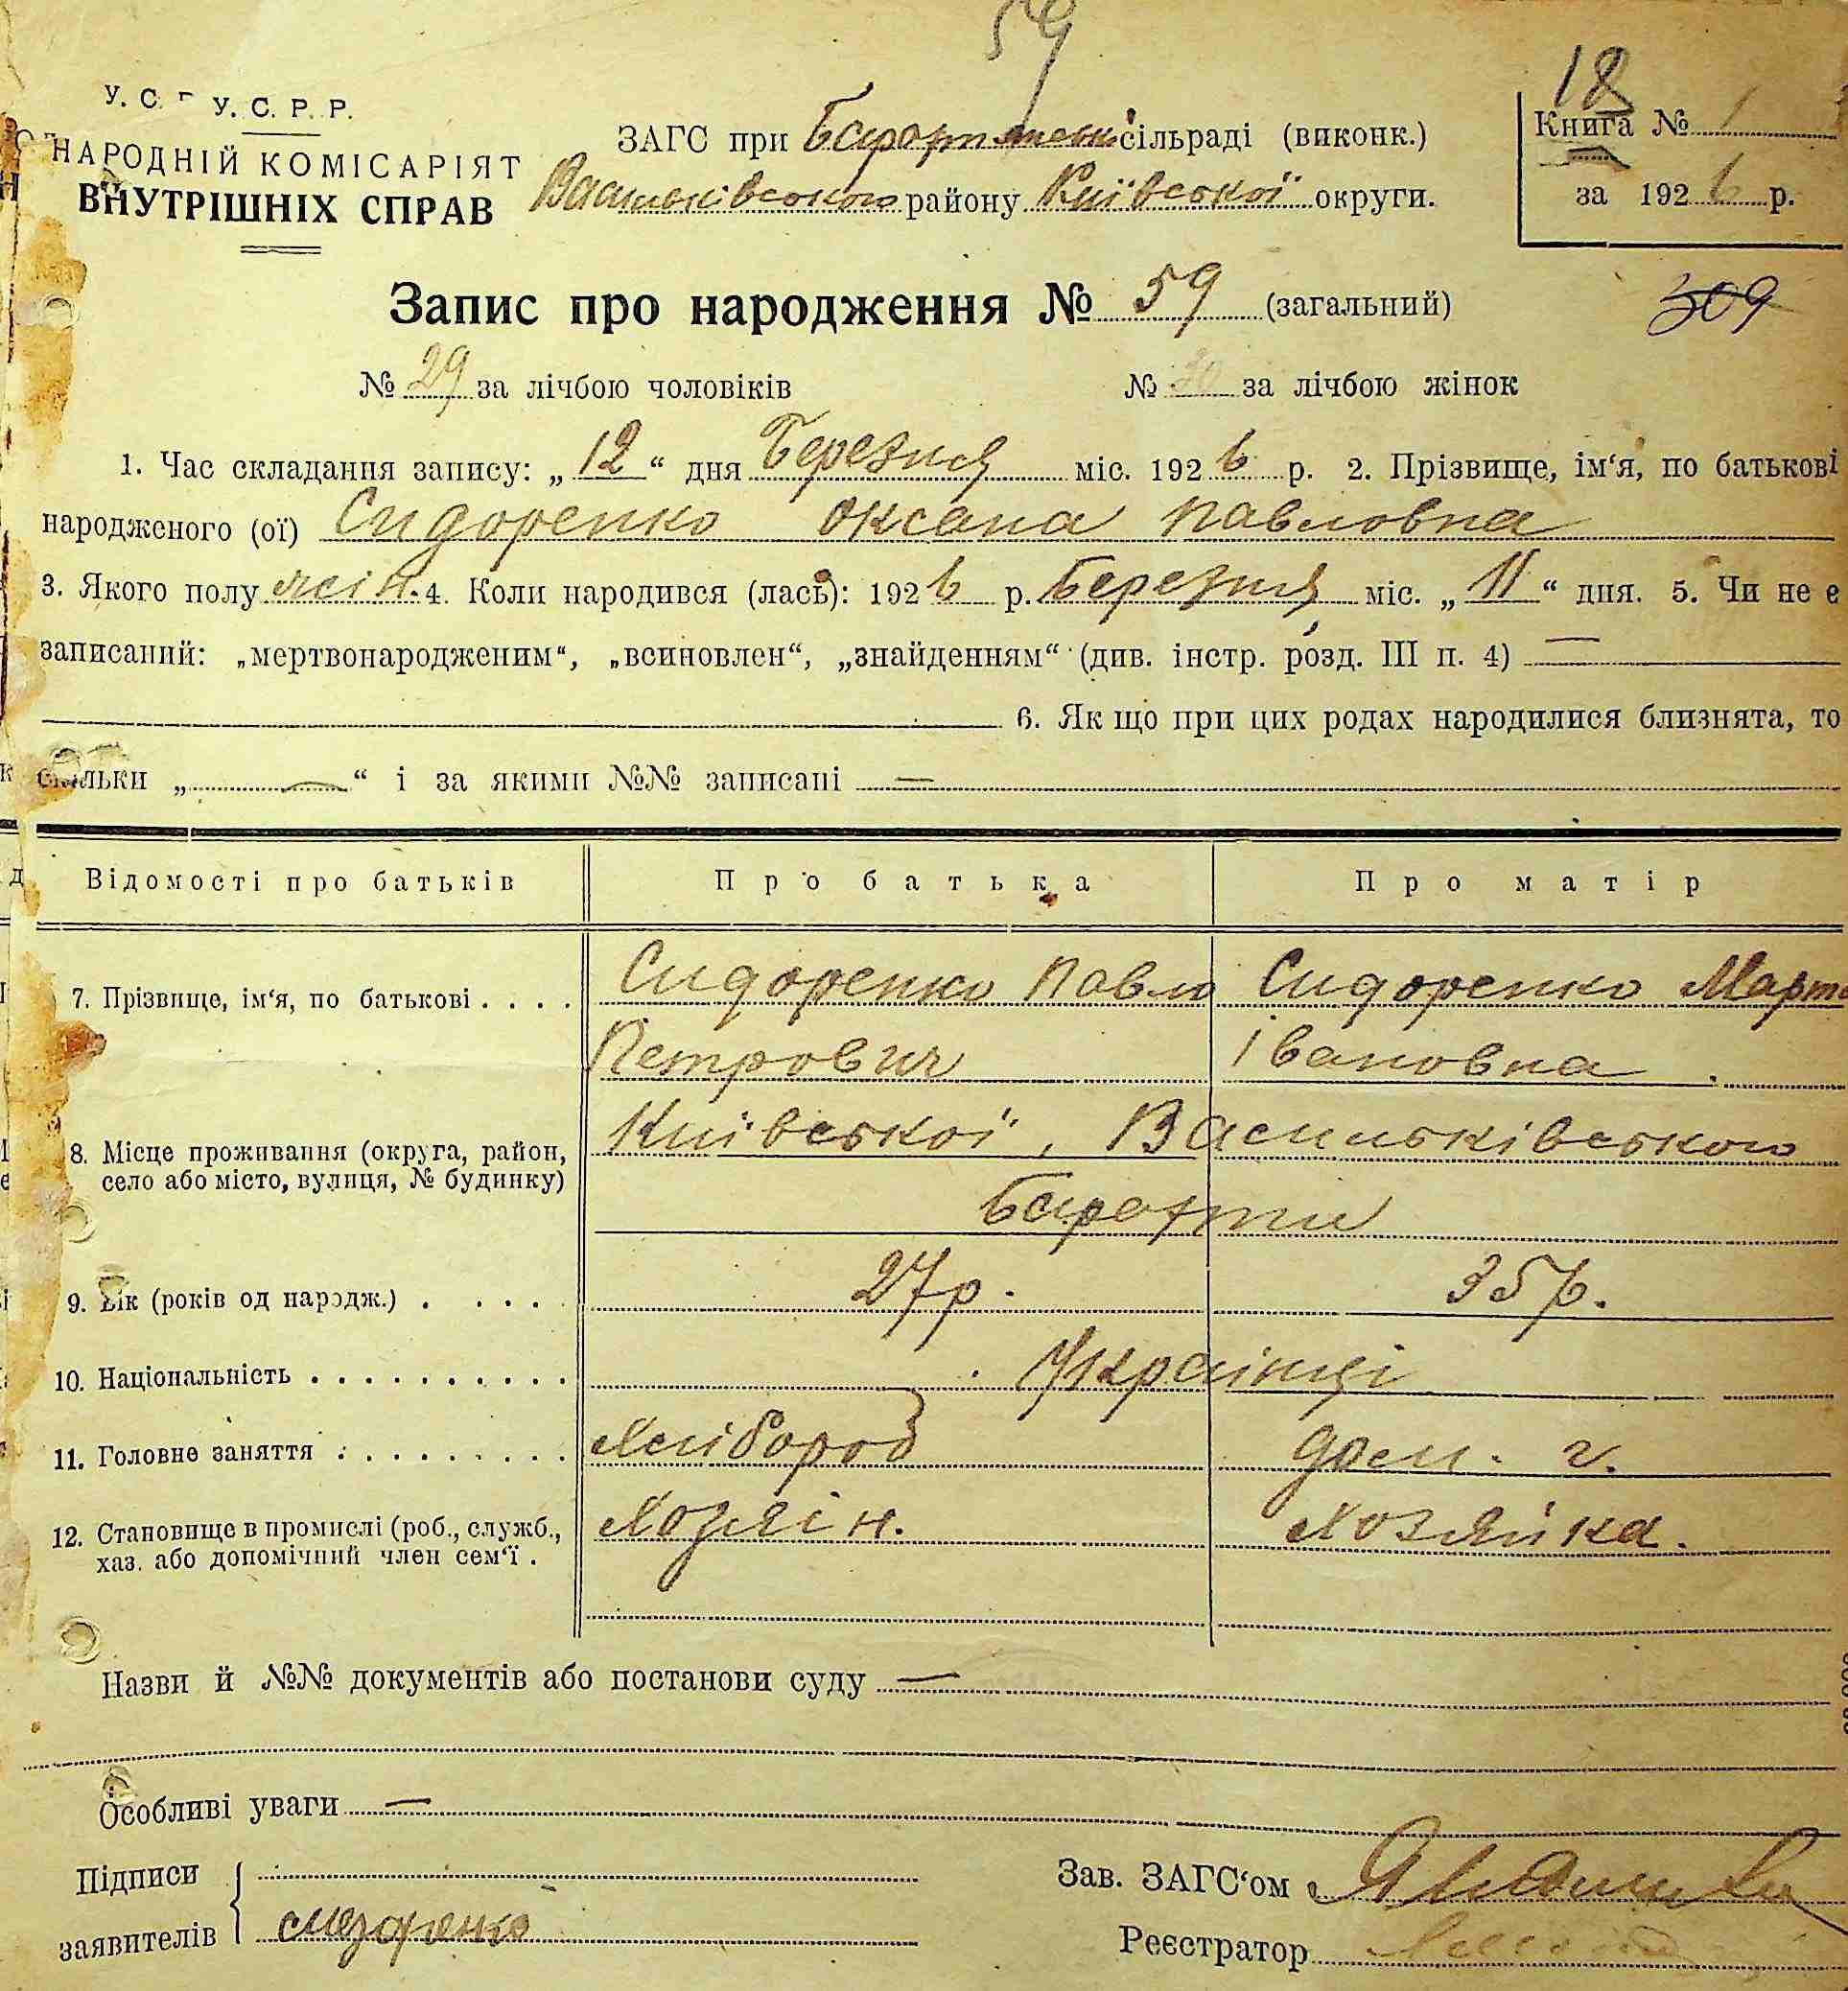 59
У. С. У. С. Р. Р.
НАРОДНІЙ КОМІСАРІЯТ
ВНУТРІШНІХ СПРАВ
ЗАГС при сільраді (виконк.)
Васильківського району Київської округи.
18
Книга № 1
за 1926 р.
Запис про народження № 59 (загальний)
309
№ 29 за лічбою чоловіків № 30 за лічбою жінок
1. Час складання запису: „12“ дня Березня міс. 1926 р. 2. Прізвище, ім‘я, по батькові
народженого (ої) Сидоренко Оксана Павловна
3. Якого полу жін. 4. Коли народився (лась): 1926 р. Березня міс. „11“ дня. 5. Чи не є
записаний: „мертвонародженим“, „всиновлен“, „знайденням“ (див. інстр. розд. III п. 4) —
6. Як що при цих родах народилися близнята, то
скільки „ — “ і за якими №№ записані —
Відомості про батьків Про батька Про матір
7. Прізвище, ім‘я, по батькові . . . . Сидоренко Павло Сидоренко Марта
Петрович Івановна
8. Місце проживання (округа, район, Київської, Васильківського
село або місто, вулиця, № будинку)
Барахти
9. Вік (років од нарэдж.) . . . . . 27 р. 35 р.
10. Національність . . . . . . . . . . Українці
11. Головне заняття . . . . . . . . . Хлібороб дом. г.
12. Становище в промислі (роб., служб., Хозяїн. Хозяйка.
хаз. або допомічний член сем‘ї .
Назви й №№ документів або постанови суду —
Особливі уваги —
Підписи
заявителів
Сидоренко
Зав. ЗАГС‘ом
Реєстратор